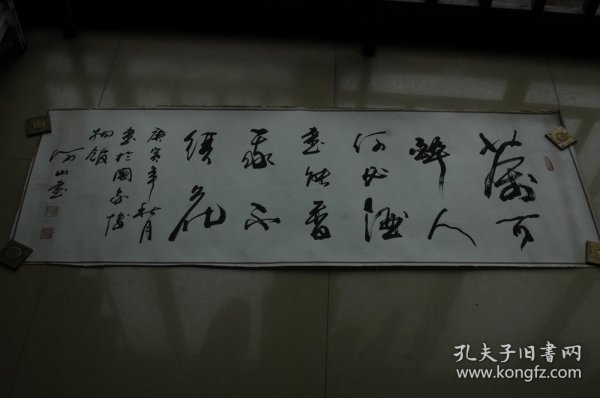 茶可
醉人
何必酒
書能香
我不
須花
庚寅年秋月
書於國家博
物館
山書
孔夫子旧書网
www.kongfz.com